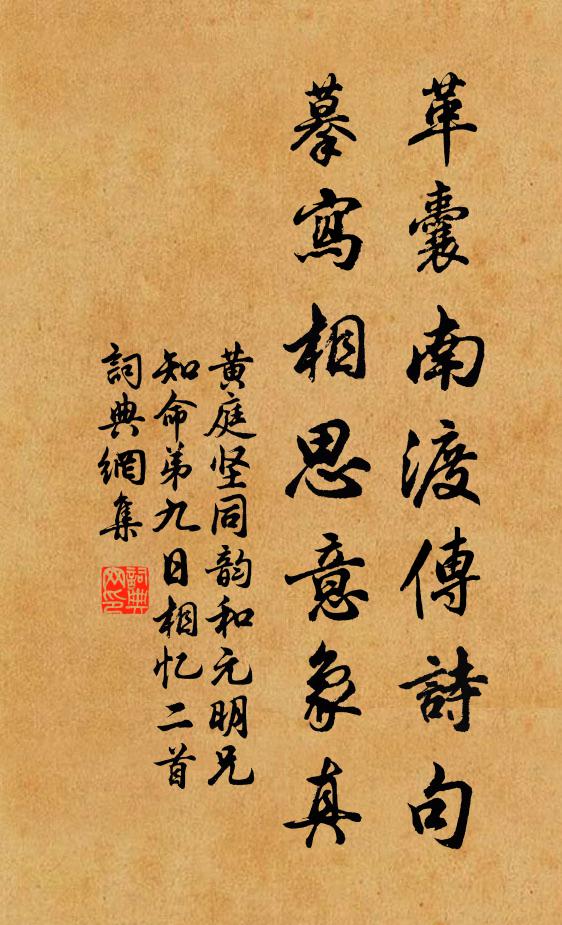 革囊南渡傳詩句
摹寫相思意象真
黄庭坚同韵和元明兄
知命弟九日相忆二首
詞典網集
詞典
网印